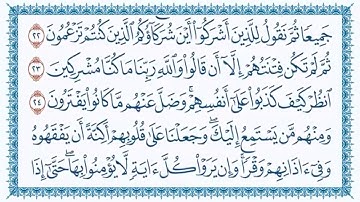 جَمِيعًا ثُمَّ نَقُولُ لِلَّذِينَ أَشْرَكُوٓا۟ أَيْنَ شُرَكَآؤُكُمُ ٱلَّذِينَ كُنتُمْ تَزْعُمُونَ ٢٢
ثُمَّ لَمْ تَكُن فِتْنَتُهُمْ إِلَّآ أَن قَالُوا۟ وَٱللَّهِ رَبِّنَا مَا كُنَّا مُشْرِكِينَ ٢٣
ٱنظُرْ كَيْفَ كَذَبُوا۟ عَلَىٰٓ أَنفُسِهِمْ ۚ وَضَلَّ عَنْهُم مَّا كَانُوا۟ يَفْتَرُونَ ٢٤
وَمِنْهُم مَّن يَسْتَمِعُ إِلَيْكَ ۖ وَجَعَلْنَا عَلَىٰ قُلُوبِهِمْ أَكِنَّةً أَن يَفْقَهُوهُ
وَفِىٓ ءَاذَانِهِمْ وَقْرًا ۚ وَإِن يَرَوْا۟ كُلَّ ءَايَةٍ لَّا يُؤْمِنُوا۟ بِهَا ۚ حَتَّىٰٓ إِذَا